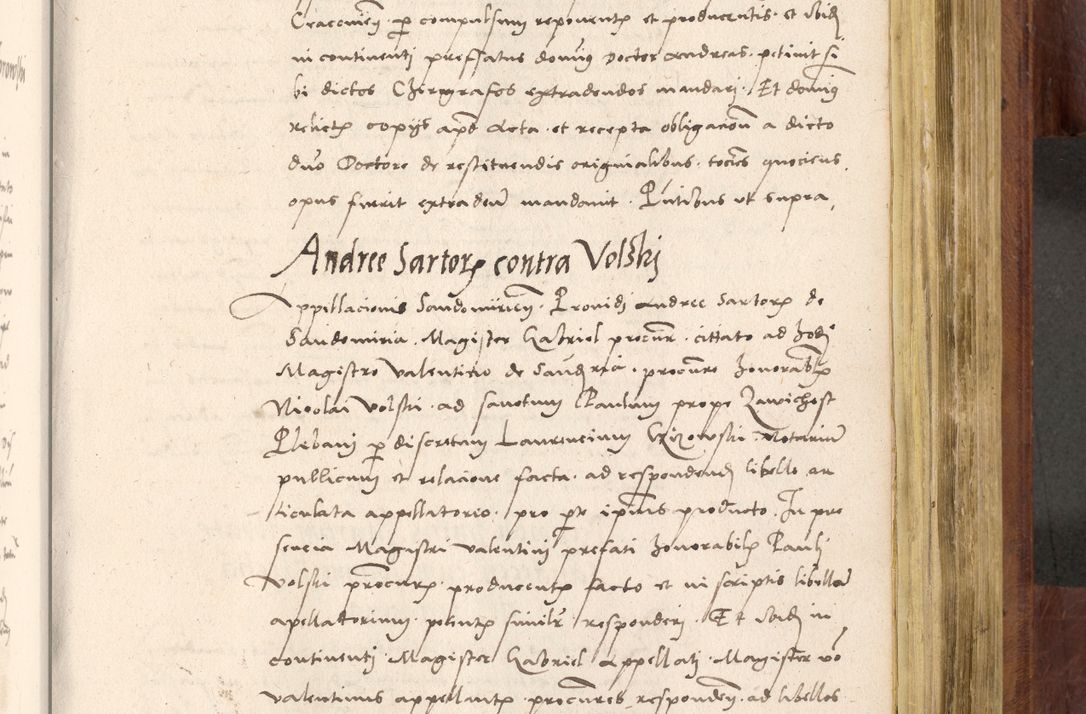 Cracovien per compulsum reponentis et producentis et ibidem
in continenti prefatus dominus Doctor Andreas petivit si
bi dictos Chirografos extradendos mandari Et dominus
relictis copiis apud Acta et recepta obligacione a dicto
domino Doctore de restituendis originalibus tocies quocies
opus fuerit extradendum mandavit Presentibus ut supra
Andree Sartoris contra Volski
Appellacionis Sandomirien Providi Andree Sartoris de
Sandomiria Magister Gabriel procur citato ad hodie
Magistro Valentino de procuratore honorabilis
Nicolai Volski ad sanctum Paulum prope Zawichost
Plebani per discretum Laurencium Notarium
publicum et relacione facta ad respondendum libello ar
ticulata appellatorio pro parte ipsius producto In pre
sencia Magistri Valentini prefati honorabilis Pauli
Volski procuratoris producentis facto et in scriptis libellum
apellatorium petentis similiter responderi Et ibidem in
continenti Magister Gabriel Appellati Magister vero
Valentinus appellantis procuratores respondendum ad libellos